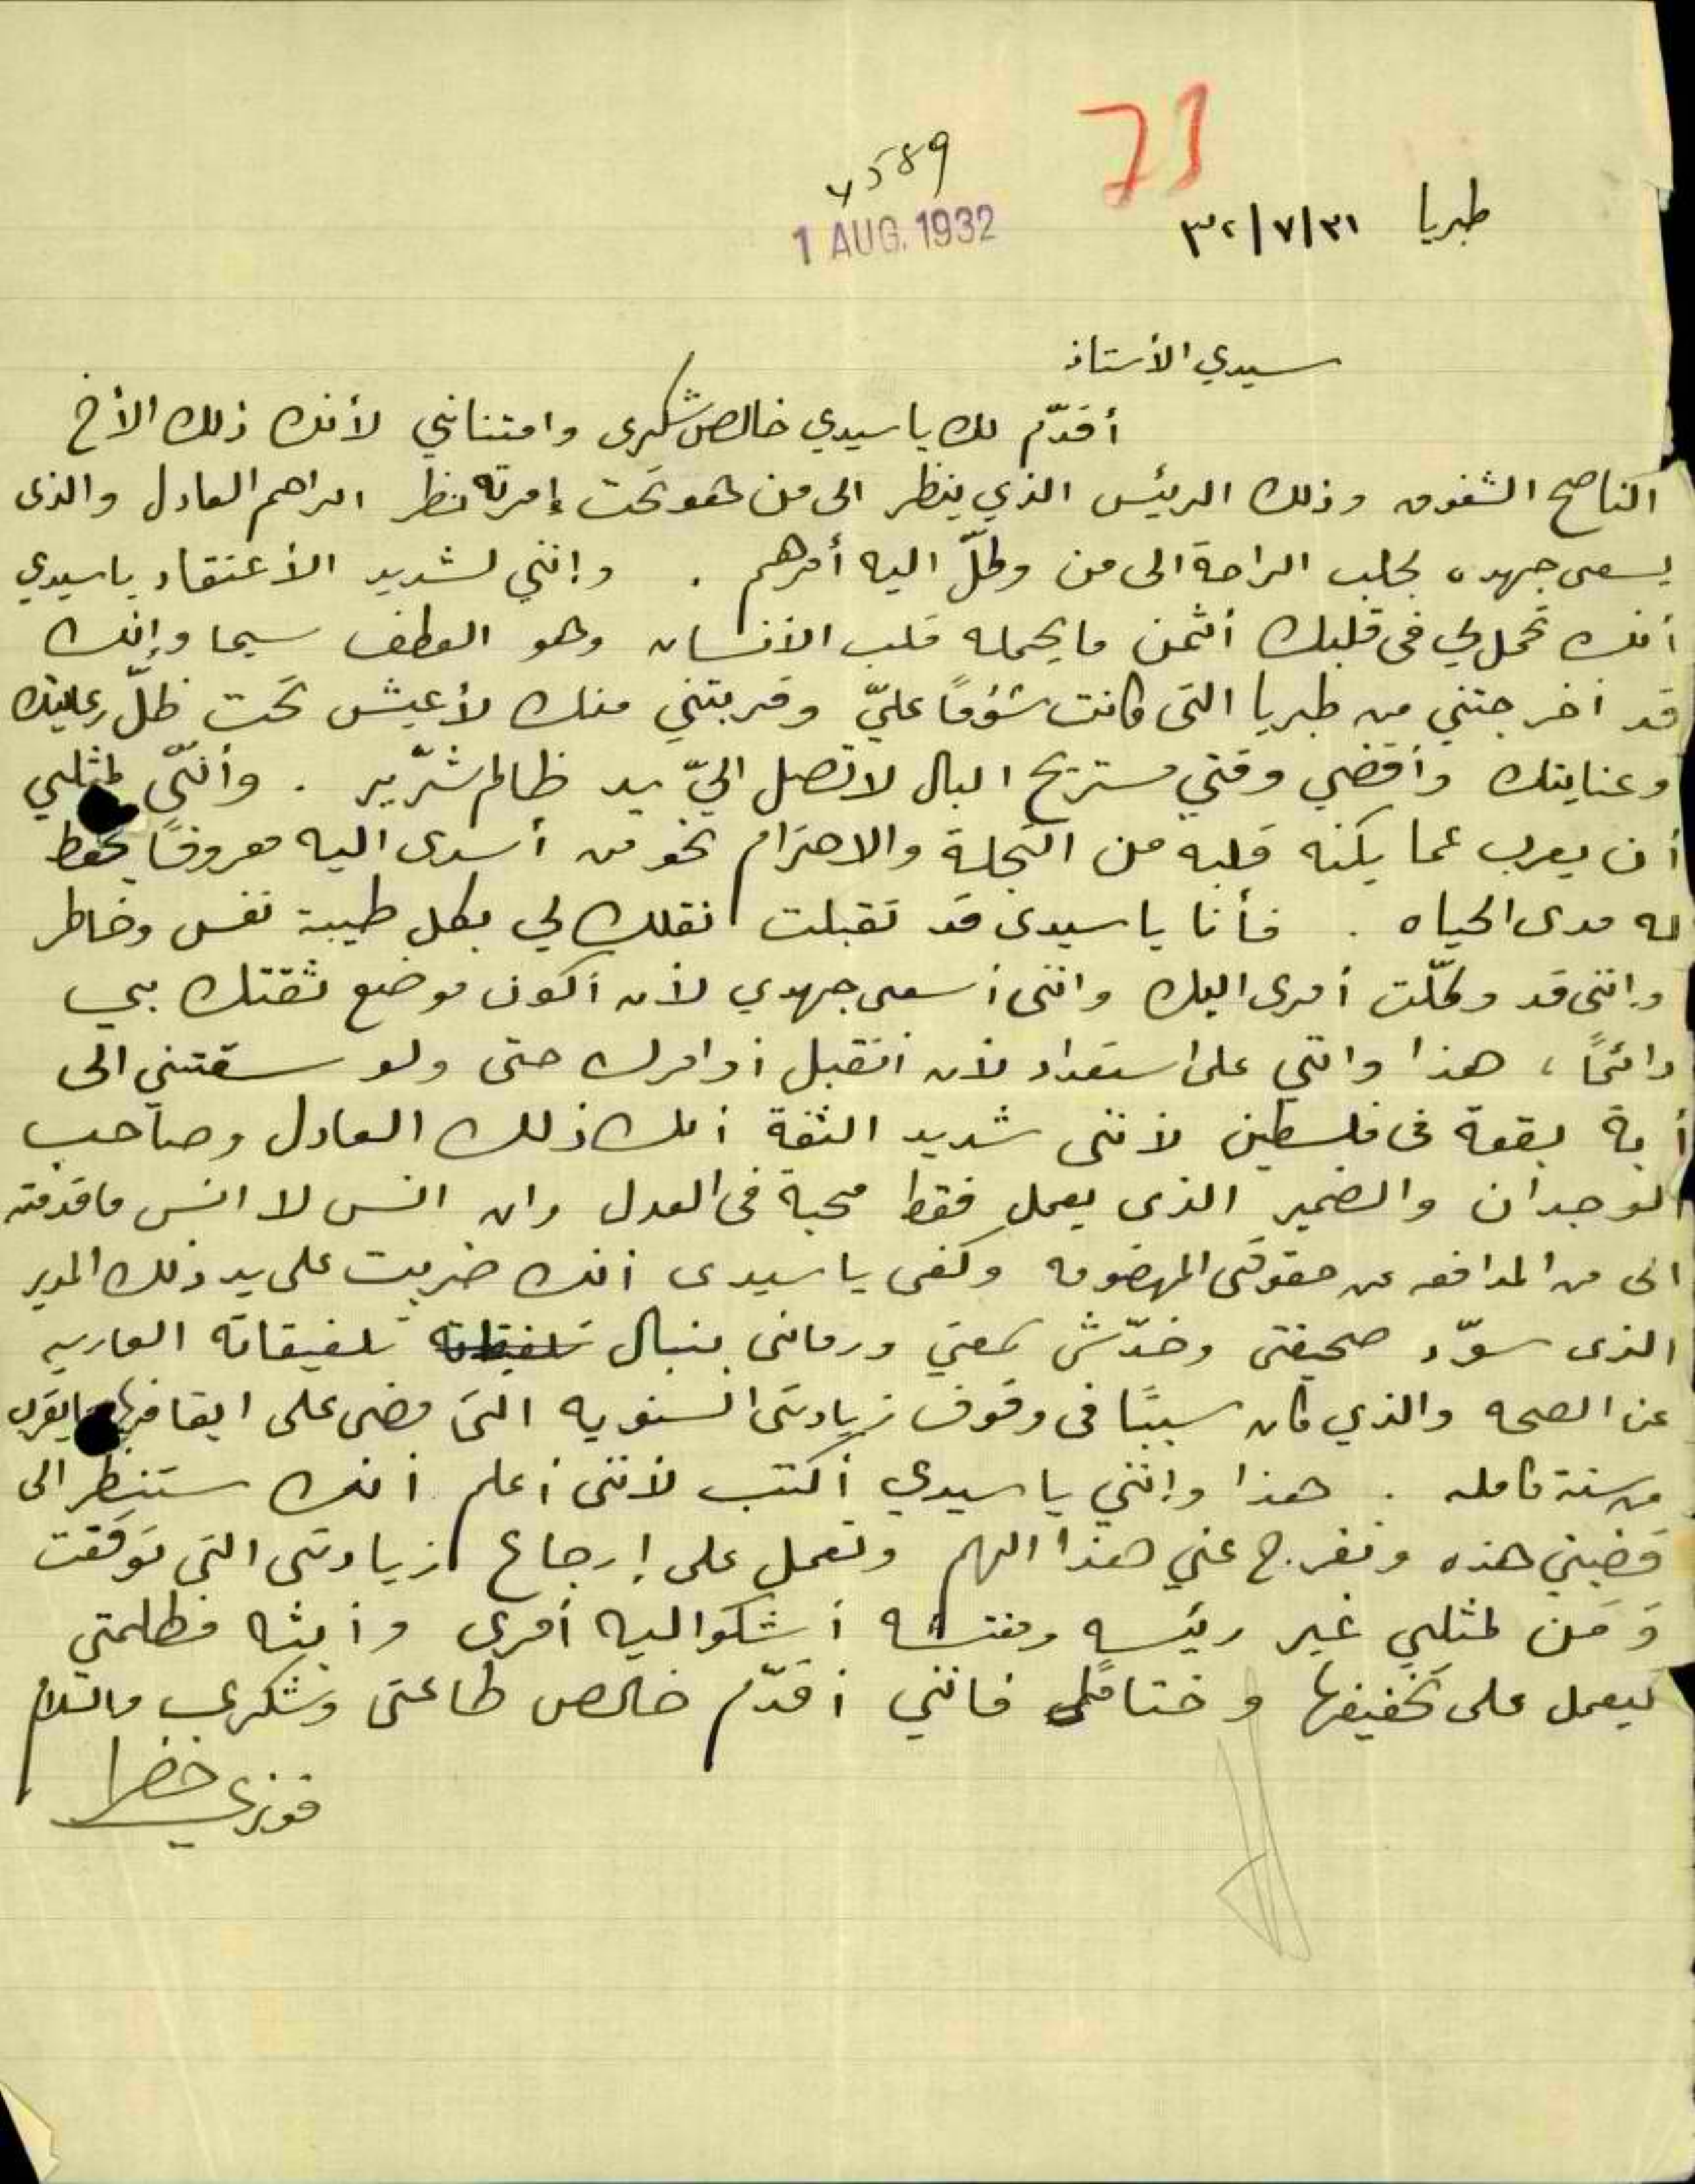 73
4589
1 AUG. 1932
طبريا ٣١/٧/٣٢
سيدي الأستاذ
أقدّم لك يا سيدي خالص شكرى وامتناني لأنك ذلك الأخ
الناصح الشفوق وذلك الرئيس الذي ينظر الى من هو تحت إمرته نظر الراحم العادل والذى
يسعى جهده بجلب الراحة الى من وكلّ اليه أمرهم . وإنني لشديد الأعتقاد يا سيدي
أنك تحمل لي فى قلبك أثمن ما يحمله قلب الأنسان وهو العطف سيما وإنك
قد أخرجتني من طبريا التى كانت شؤمًا عليّ وقربتني منك لأعيش تحت ظلّ رعايتك
وعنايتك وأقضي وقتي مستريح البال لا تصل اليّ يد ظالم شرّير . وأنّى لمثلي
أن يعرب عما يكنه قلبه من التجلة والاحترام نحو من أسدى اليه معروفًا يحفظ
له مدى الحياه . فأنا يا سيدى قد تقبلت نقلك لي بكل طيبة نفس وخاطر
وإننى قد وكلّت أمرى اليك واننى أسعى جهدي لأن أكون موضع ثقتك بي
دائمًا ، هذا وانني على استعداد لأن أتقبل أوامرك حتى ولو سقتني الى
أية بقعة فى فلسطين لأننى شديد الثقة أنك ذلك العادل وصاحب
الوجدان والضمير الذى يعمل فقط محبة فى العدل وان انس لا انس ما قدمته
الى من المدافعه عن حقوقى المهضومه وكفى يا سيدى أنك ضربت على يد ذلك المدير
الذى سوّد صحيفتى وخدّش سمعتي ورمانى بنبال تلفيقاته العاريه
عن الصحه والذي كان سببًا فى وقوف زيادتى السنويه التى مضى على ايقافها ما يقرب
من سنة كامله . هذا وإنني يا سيدي أكتب لأننى أعلم أنك ستنظر الى
قضيتي هذه وتفرج عني هذا الهم وتعمل على إرجاع زيادتى التي توقفت
وَمَن لمثلي غير رئيسه ومفتشه أشكو اليه أمرى وأبثه مظلمتي
ليعمل على تخفيفها وختامًا فانني أقدّم خالص طاعتى وشكري والسلام
فوزي خضرا